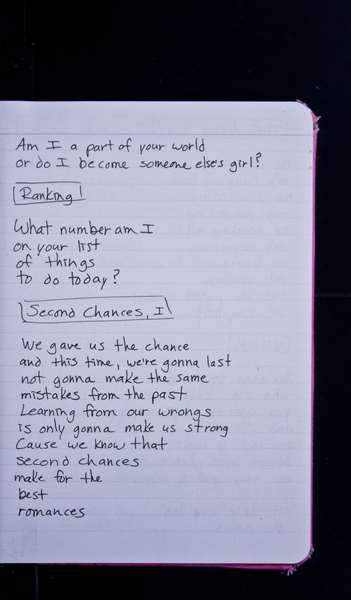 Am I a part of your world
or do I become someone else's girl?
Ranking
What number am I
on your list
of things
to do today?
Second Chances, I
We gave us the chance
and this time, we're gonna last
not gonna make the same
mistakes from the past
Learning from our wrongs
is only gonna make us strong
Cause we know that
second chances
make for the
best
romances